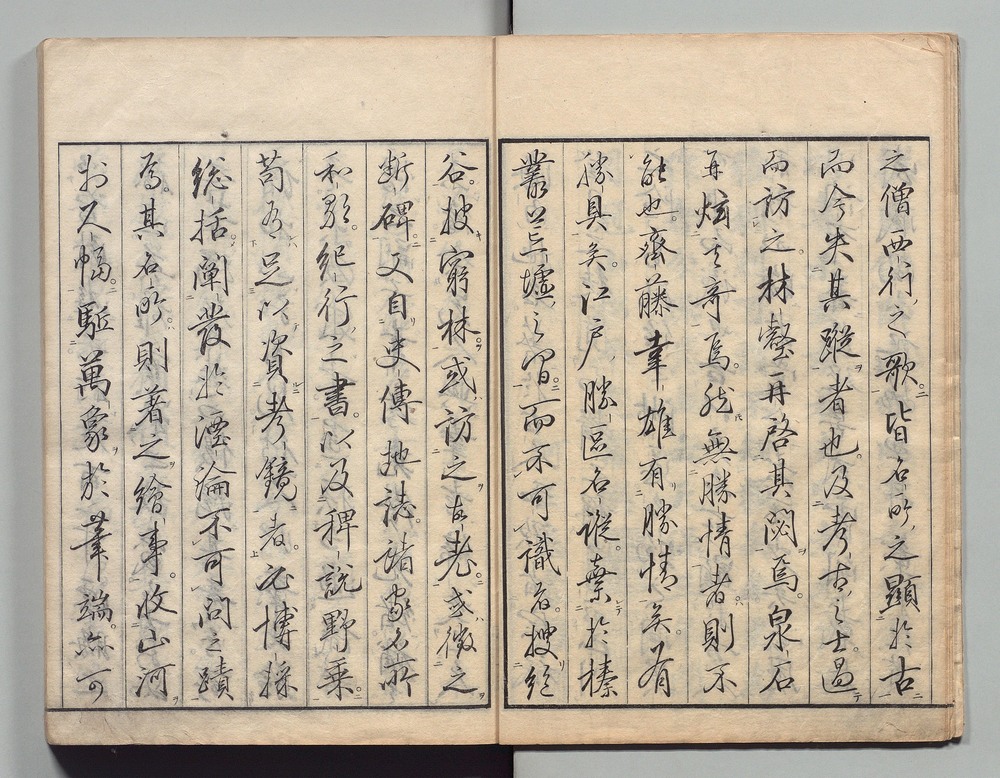 之僧西行之歌皆名所之顯於古
而今失其蹤者也及考古之士過
而訪之林壑再啓其閟焉泉石
再炫之奇焉然無勝情者則不
能也齋藤幸雄有勝情矣有
勝具矣江戶勝區名蹤棄於榛
叢荒墟之間而不可識者搜絕
谷披窮林或訪之古老或徵之
斷碑又自史傳地誌諸家名所
和歌紀行之書以及稗說野乘
苟有足以資考鏡者必博採
總括闡發於湮淪不可問之蹟
焉其名所則著之繪事收山河
於尺幅驅萬象於筆端亦可